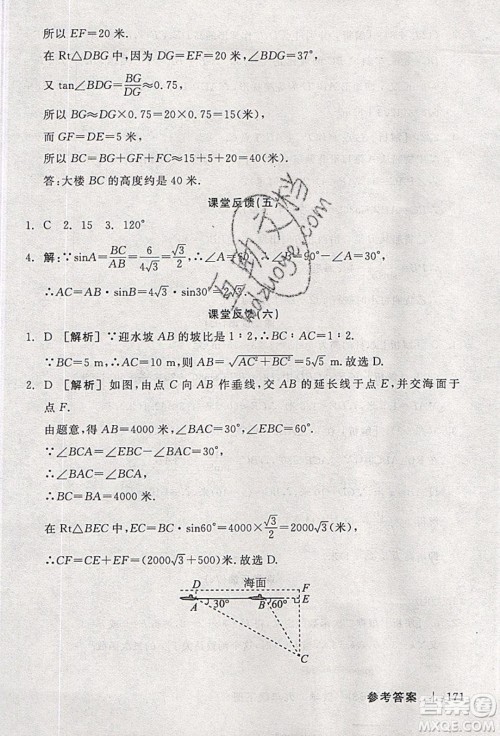 所以 EF=20 米.
在 Rt△DBG 中，因为 DG=EF=20 米，∠BDG=37°，
又 tan∠BDG=BG/DG≈0.75，
所以 BG≈DG×0.75≈20×0.75=15(米)，
而 GF=DE=5 米，
所以 BC=BG+GF+FC≈15+5+20=40(米).
答:大楼 BC 的高度约是 40 米.
课堂反馈(五)
1. C 2. 15 3. 120°
4. 解:∵sinA=BC/AB=6/4√3=√3/2，∴∠A=60°，∴∠B=90°-∠A=30°，
∴AC=AB·sinB=4√3·sin30°=2√3.
课堂反馈(六)
1. D [解析] ∵迎水坡 AB 的坡比是 1∶2，∴BC∶AC=1∶2.
∵BC=5 m，∴AC=10 m，∴AB=√AC²+BC²=5√5 m. 故选 D.
2. D [解析] 如图，由点 C 向 AB 作垂线，交 AB 的延长线于点 E，并交海面于
点 F.
由题意，得 AB=4000 米，∠BAC=30°，∠EBC=60°.
∵∠BCA=∠EBC-∠BAC=30°，
∴∠BAC=∠BCA，
∴BC=BA=4000 米.
在 Rt△BEC 中，EC=BC·sin60°=4000×√3/2=2000√3(米)，
∴CF=CE+EF=(2000√3+500)米. 故选 D.
D 海面 F
A 30° B 60° E
C
参考答案 171
互助文档
hazuoye.com